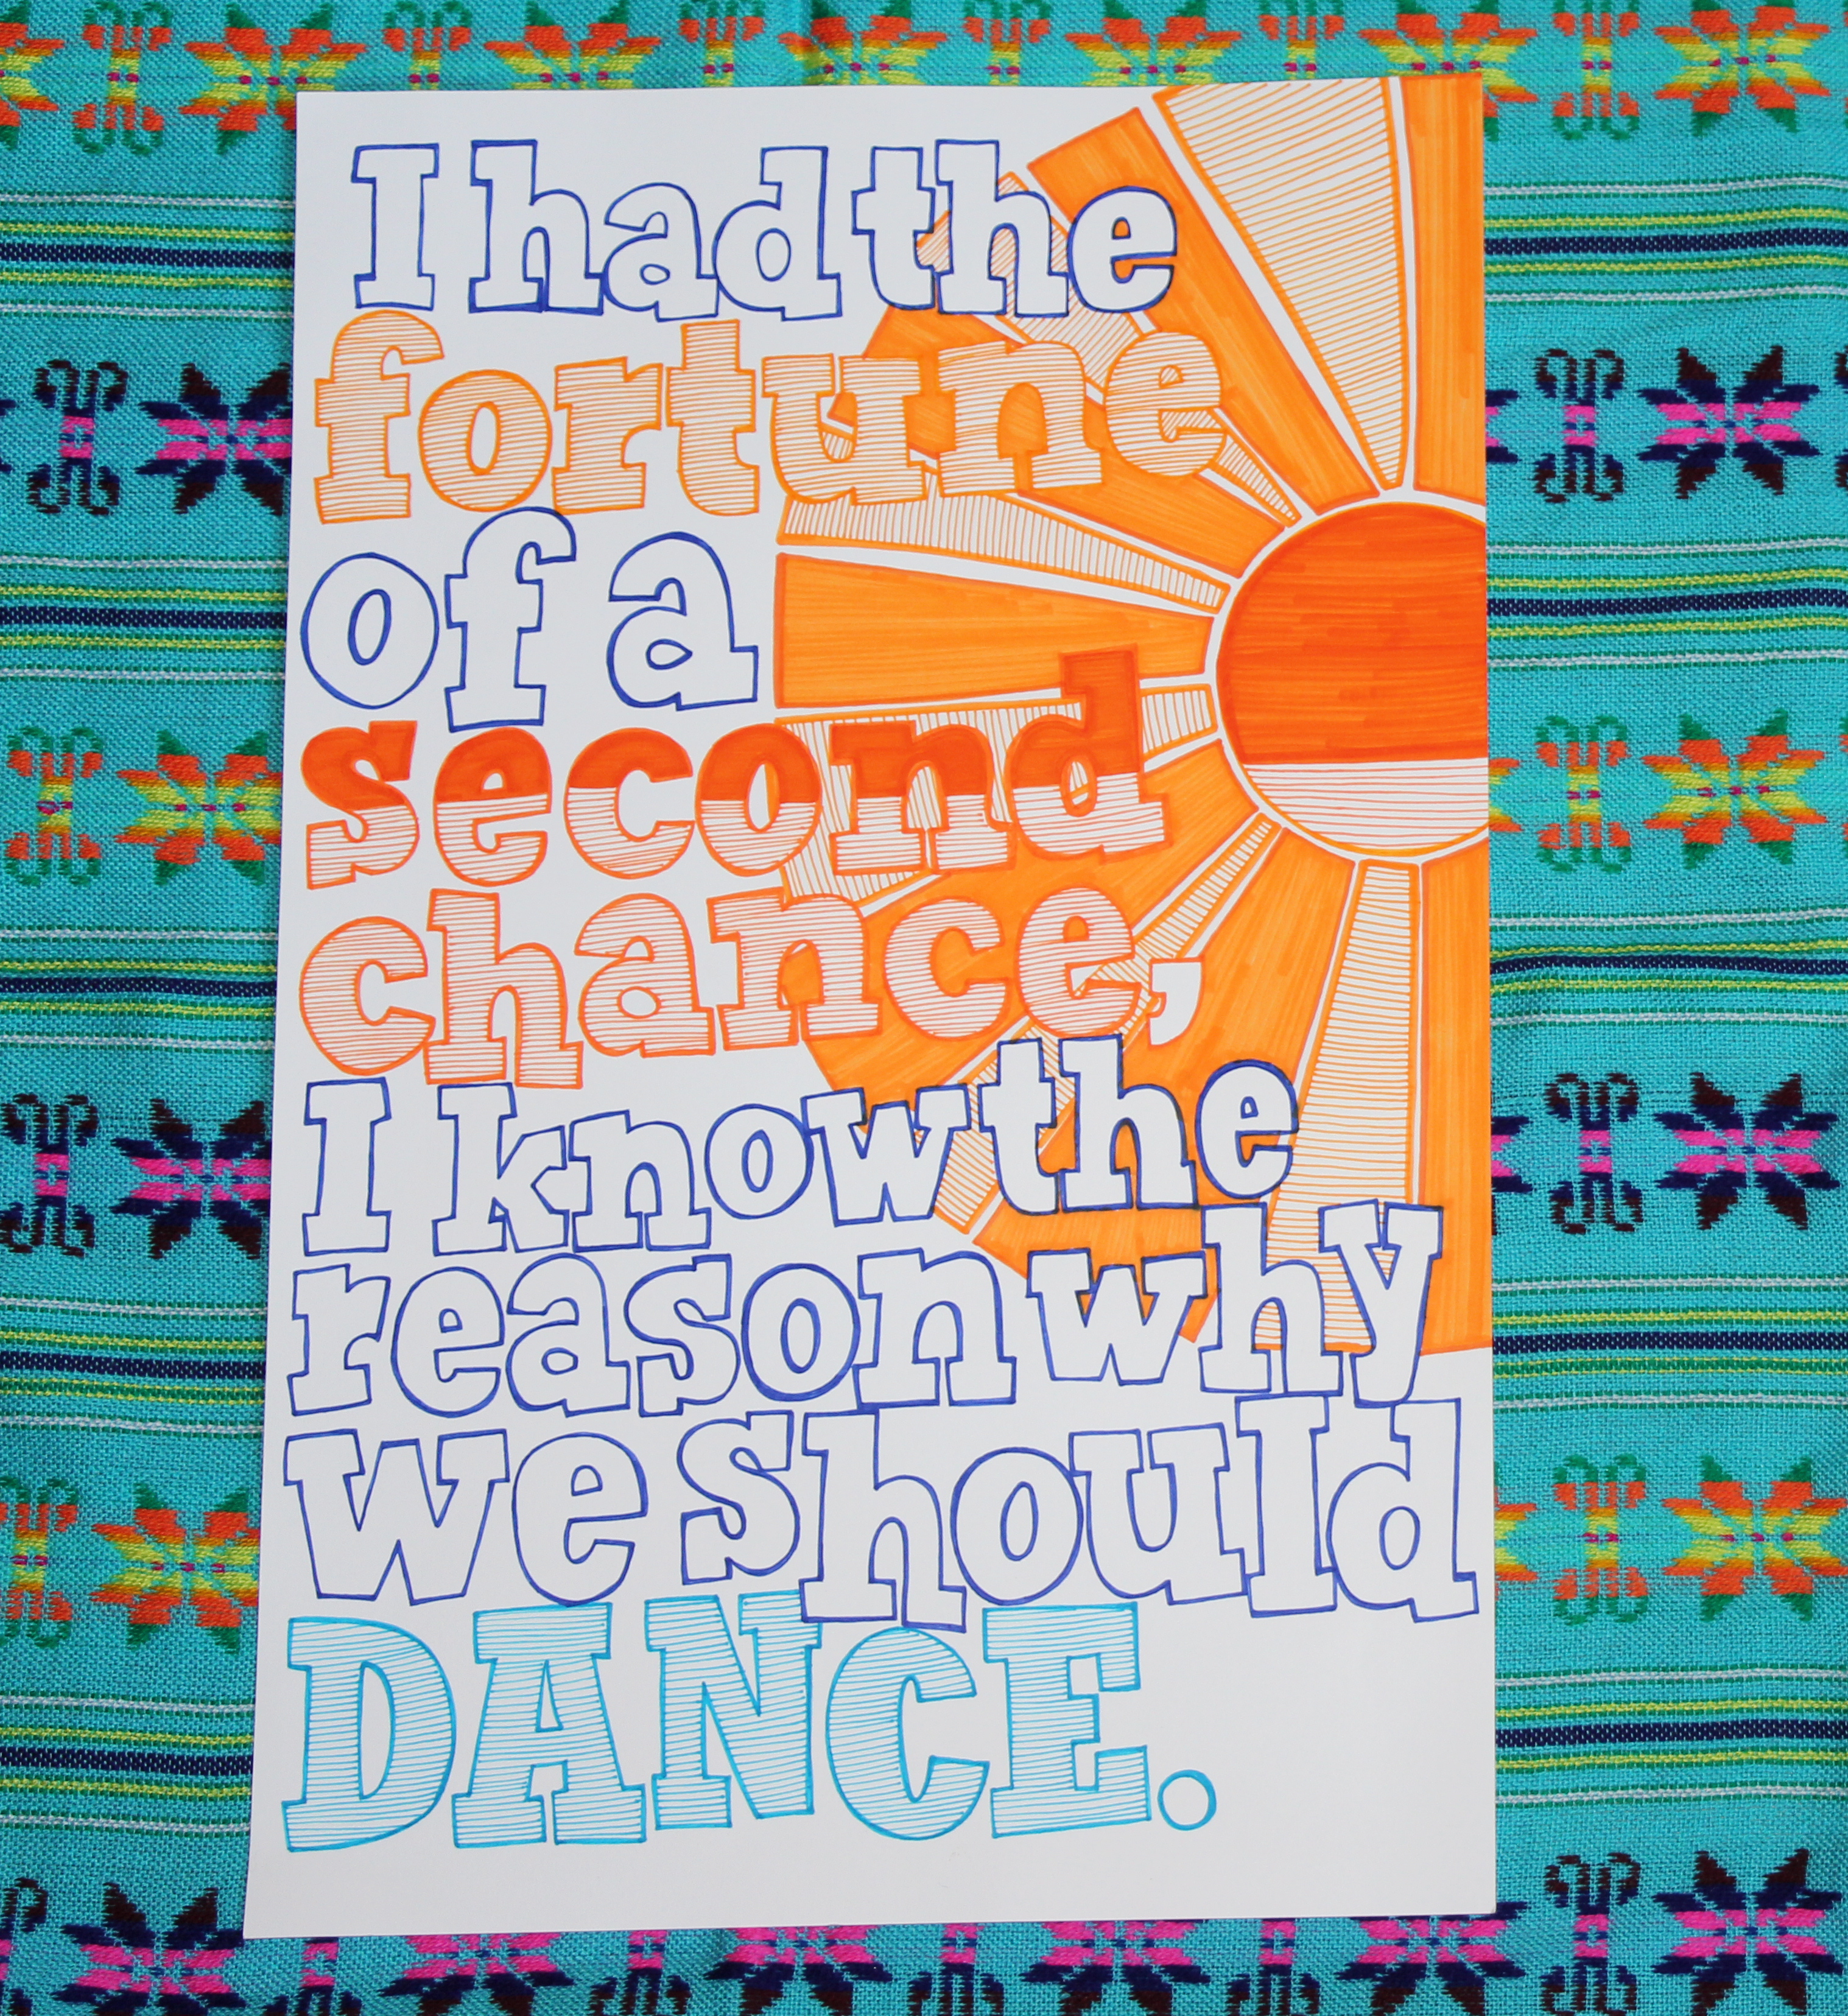 I had the
fortune
of a
second
chance,
I know the
reason why
we should
DANCE.